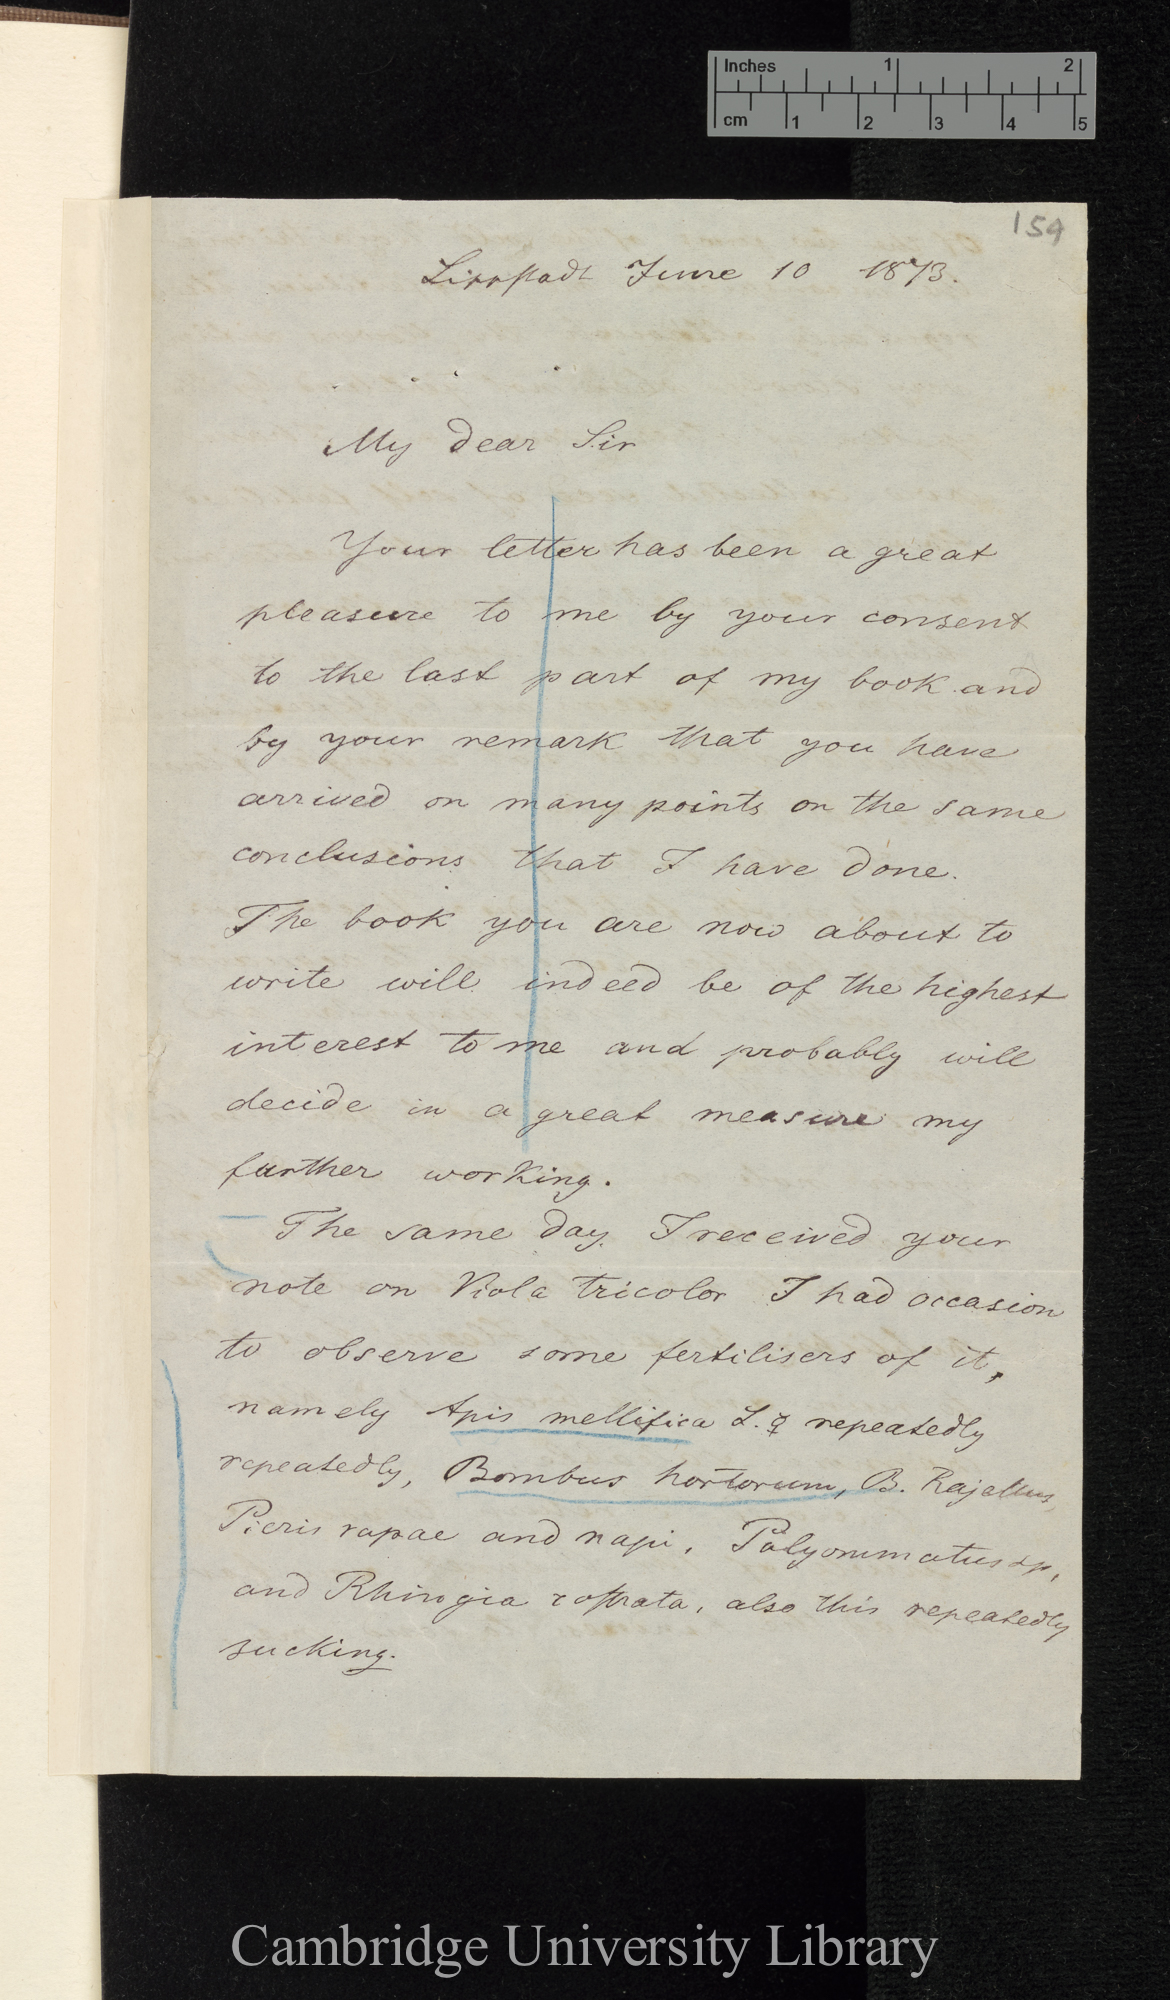 Inches 1 2
cm 1 2 3 4 5
159
Lippstadt June 10 1873.
My dear Sir
Your letter has been a great
pleasure to me by your consent
to the last part of my book and
by your remark that you have
arrived on many points on the same
conclusions that I have done.
The book you are now about to
write will indeed be of the highest
interest to me and probably will
decide in a great measure my
further working.
The same day I received your
note on Viola tricolor I had occasion
to observe some fertilisers of it,
namely Apis mellifica L. ☿ repeatedly
repeatedly, Bombus hortorum, B. Rajellus,
Pieris rapae and napi, Polyommatus sp.
and Rhingia rostrata, also this repeatedly
sucking.
Cambridge University Library